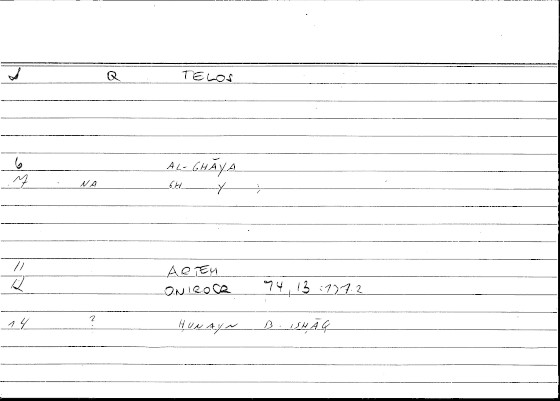 1 Q TELOS
6 AL-GHĀYA
7 NA GH Y
11 ARTEM
12 ONIROCR 74,13
14 ? HUNAYN B. ISHĀQ